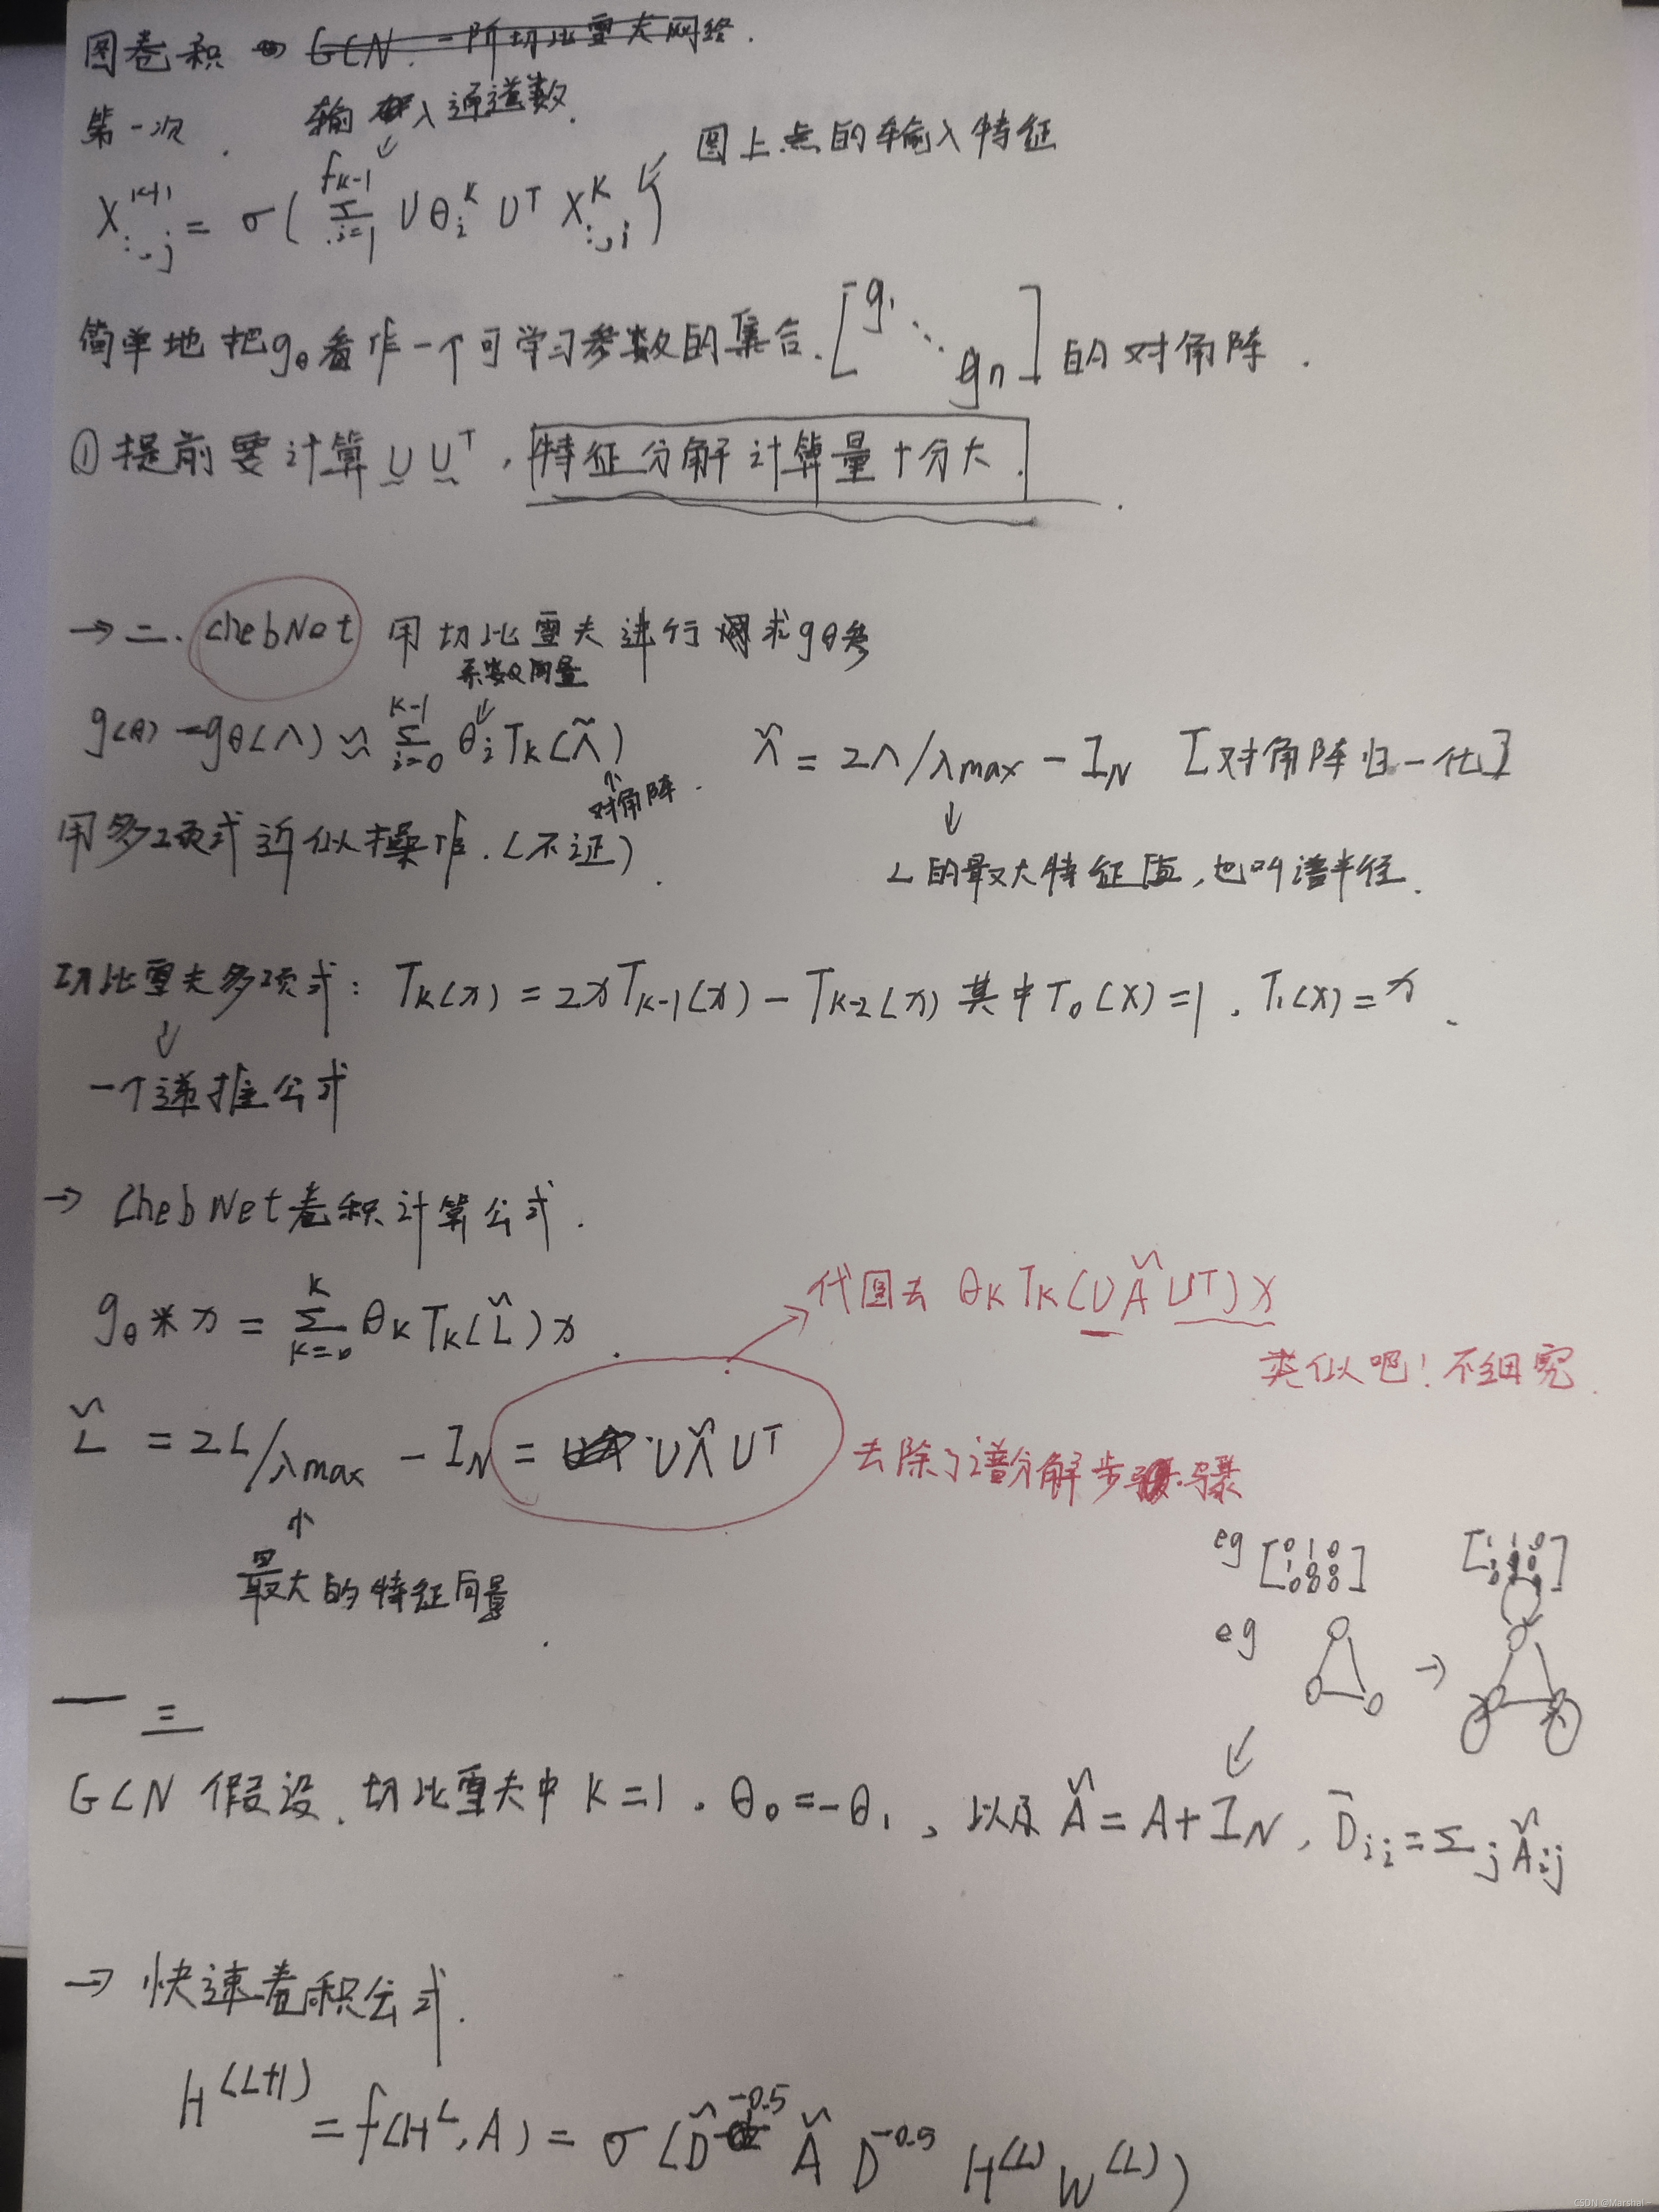 图卷积 → GCN. 一阶切比雪夫网络.
第一次.
输入通道数.
图上点的输入特征
X^{k+1}_{:,j} = σ( Σ_{i=1}^{f_{k-1}} U θ_i^k U^T X^k_{:,i} )
简单地把gθ看作一个可学习参数的集合. [g₁ ⋱ gn] 的对角阵.
① 提前要计算 U U^T, 特征分解计算量十分大.
→ 二. ChebNet 用切比雪夫进行求gθ参
系数向量
g(θ) = gθ(Λ) ≈ Σ_{i=0}^{K-1} θ_i T_k(Λ̃) Λ̃ = 2Λ/λmax - I_N [对角阵归一化]
对角阵.
用多项式近似操作.(不证). L的最大特征值,也叫谱半径.
切比雪夫多项式: T_k(x) = 2xT_{k-1}(x) - T_{k-2}(x) 其中T₀(x)=1, T₁(x)=x.
一个递推公式
→ ChebNet卷积计算公式.
代回去 θ_K T_K(U Λ̃ U^T) x
gθ * x = Σ_{k=0}^{K} θ_K T_K(L̃) x.
类似吧! 不细究.
L̃ = 2L/λmax - I_N = U Λ̃ U^T
去除了谱分解步骤
最大的特征向量.
eg [0 1 0 1 0 0 0 0 0]
eg →
三
GCN 假设, 切比雪夫中 K=1, θ₀=-θ₁, 以及 Ã = A+I_N, D̄_{ii} = Σ_j Ã_{ij}
→ 快速卷积公式.
H^{(L+1)} = f(H^L, A) = σ(D̃^{-0.5} Ã D^{-0.5} H^{(L)} W^{(L)})
CSDN @Marshal